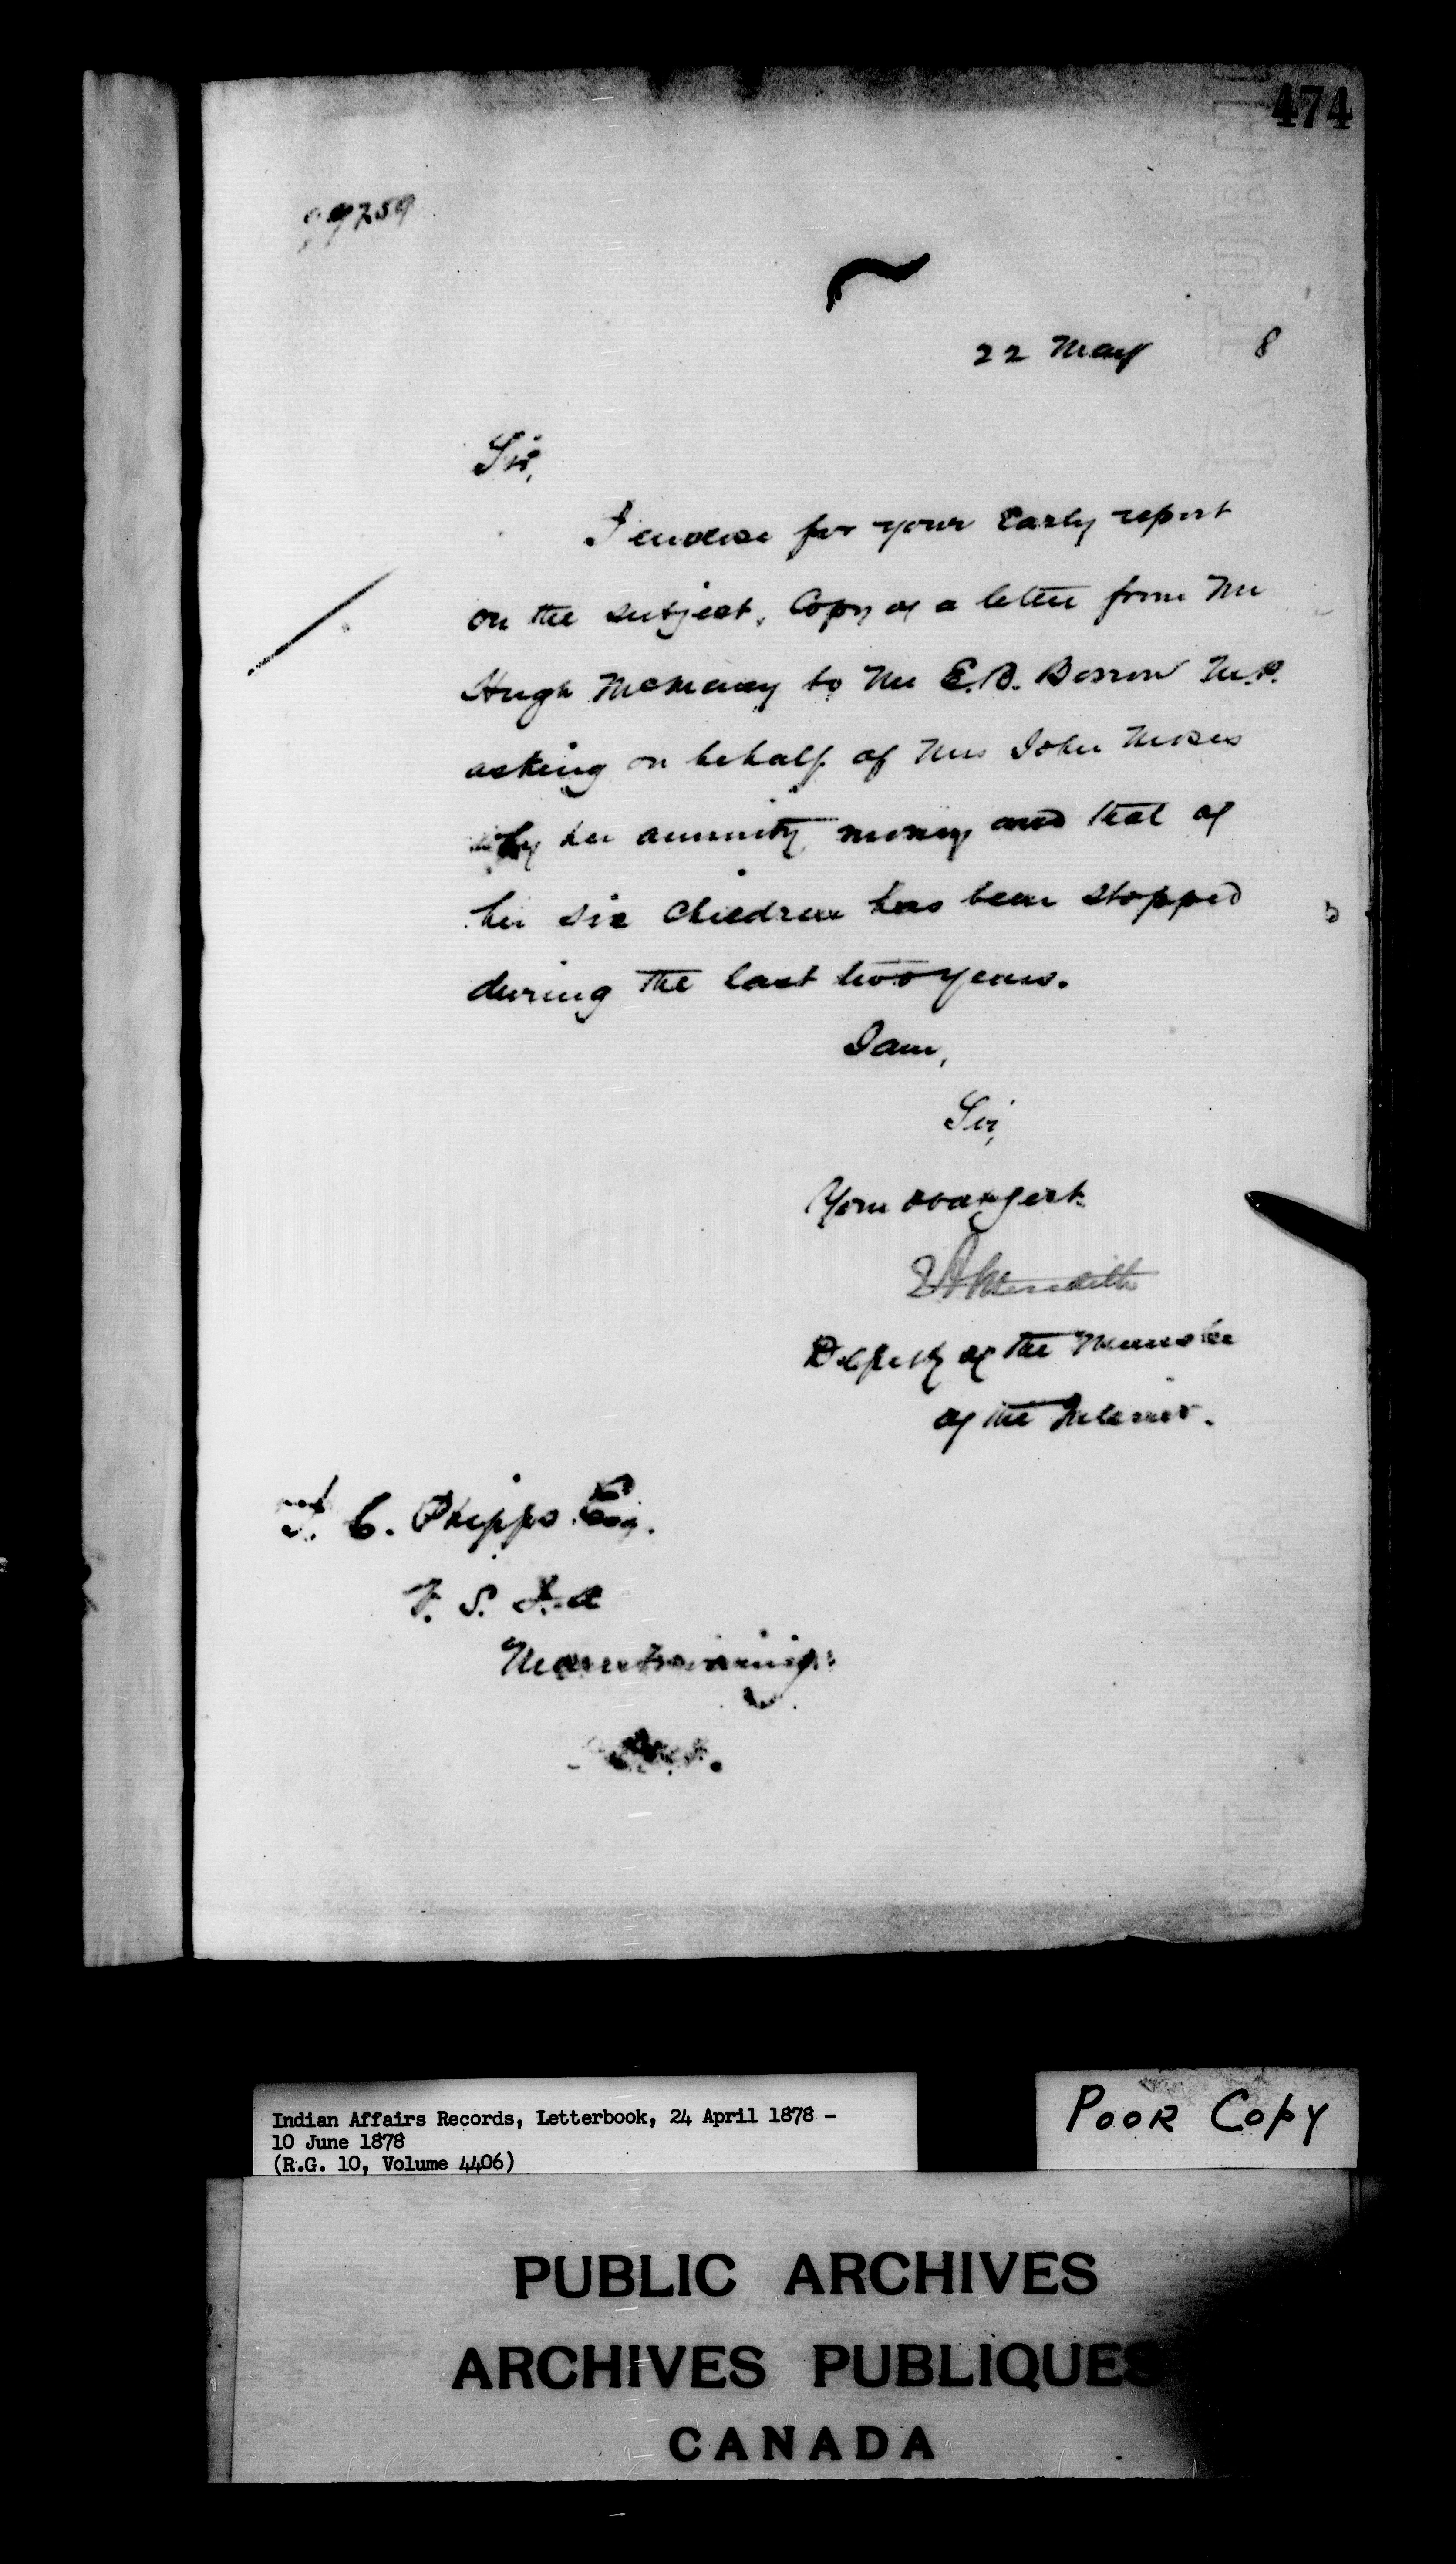 474
22 May 8
Sir,
I enclose for your Early report
on the subject, Copy of a letter from Mr
Hugh to Mr E.B. Borron M.P.
asking on behalf of Mrs John Moses
why her annuity money and that of
her six children has been stopped
during the last two years.
I am,
Sir,
Your obdt Servt
E A Meredith
Deputy of the Minister
of the Interior.
J. C. Phipps Esq.
V. S. I. A
Manitowaning
Indian Affairs Records, Letterbook, 24 April 1878 -
10 June 1878
(R.G. 10, Volume 4406)
POOR COPY
PUBLIC ARCHIVES
ARCHIVES PUBLIQUES
CANADA